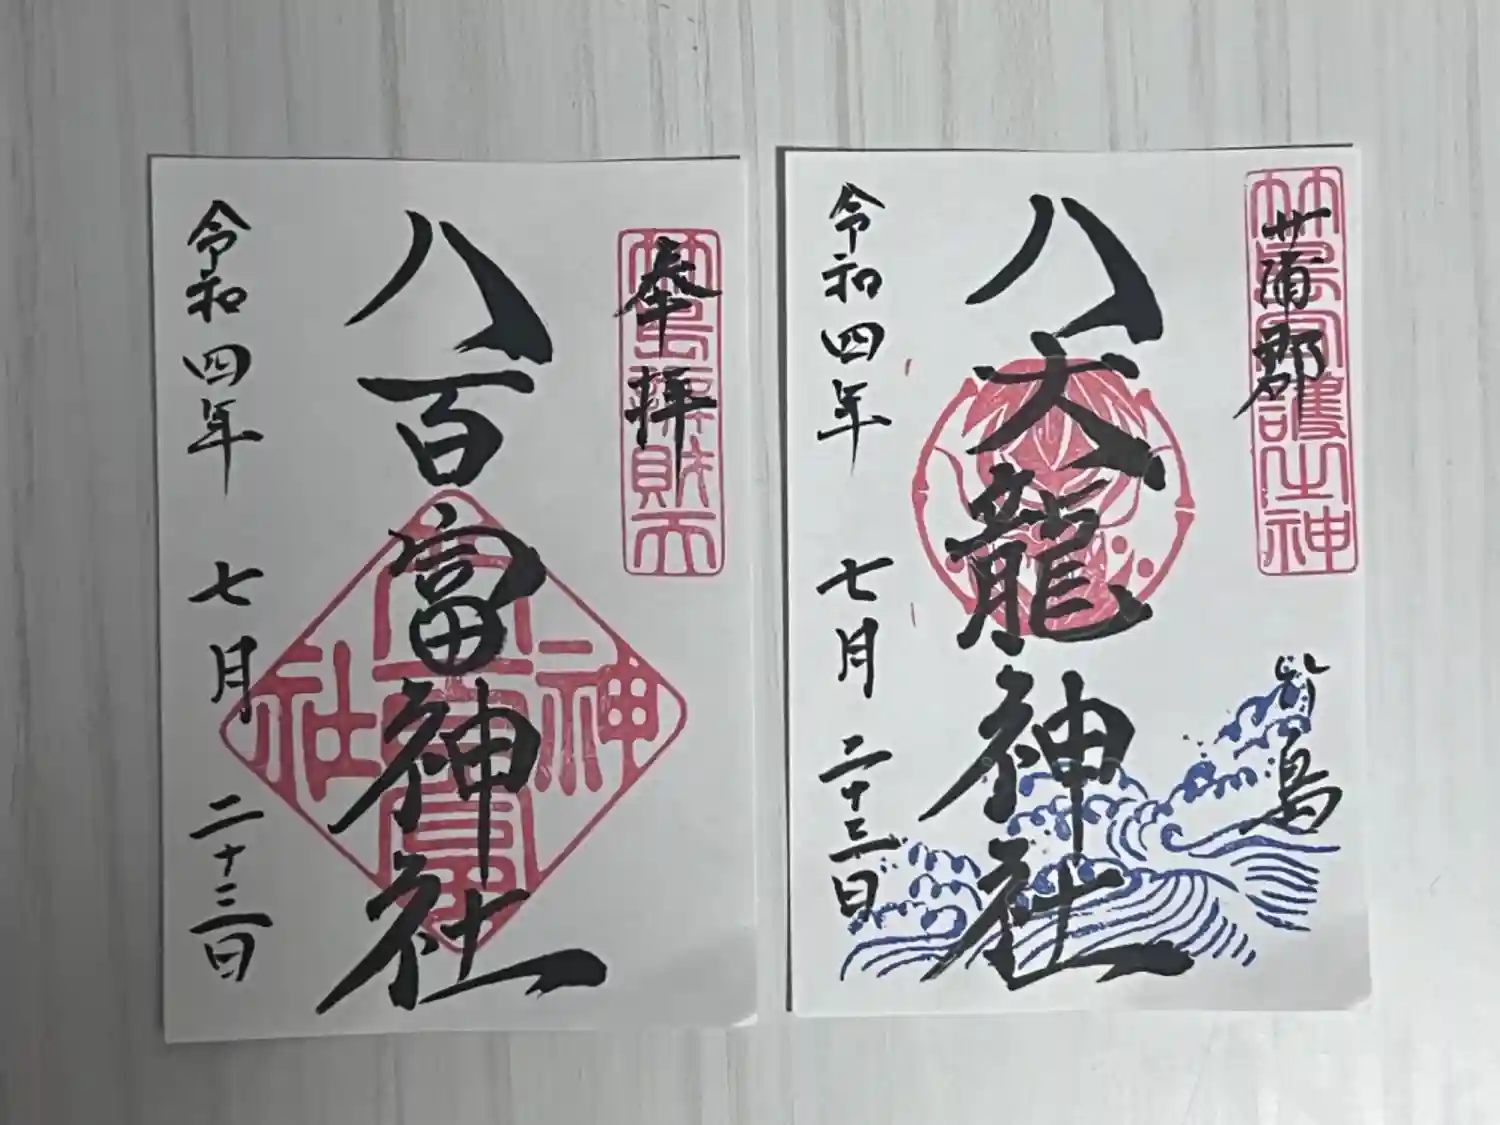 奉拝
竹島辨財天
八百富神社
令和四年 七月 二十三日
蒲郡
竹島守護之神
竹島
八大龍神社
令和四年 七月 二十三日